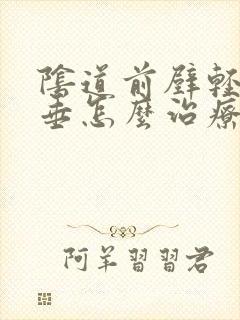 陰道前壁輕
垂怎麼治療
阿羊習習君